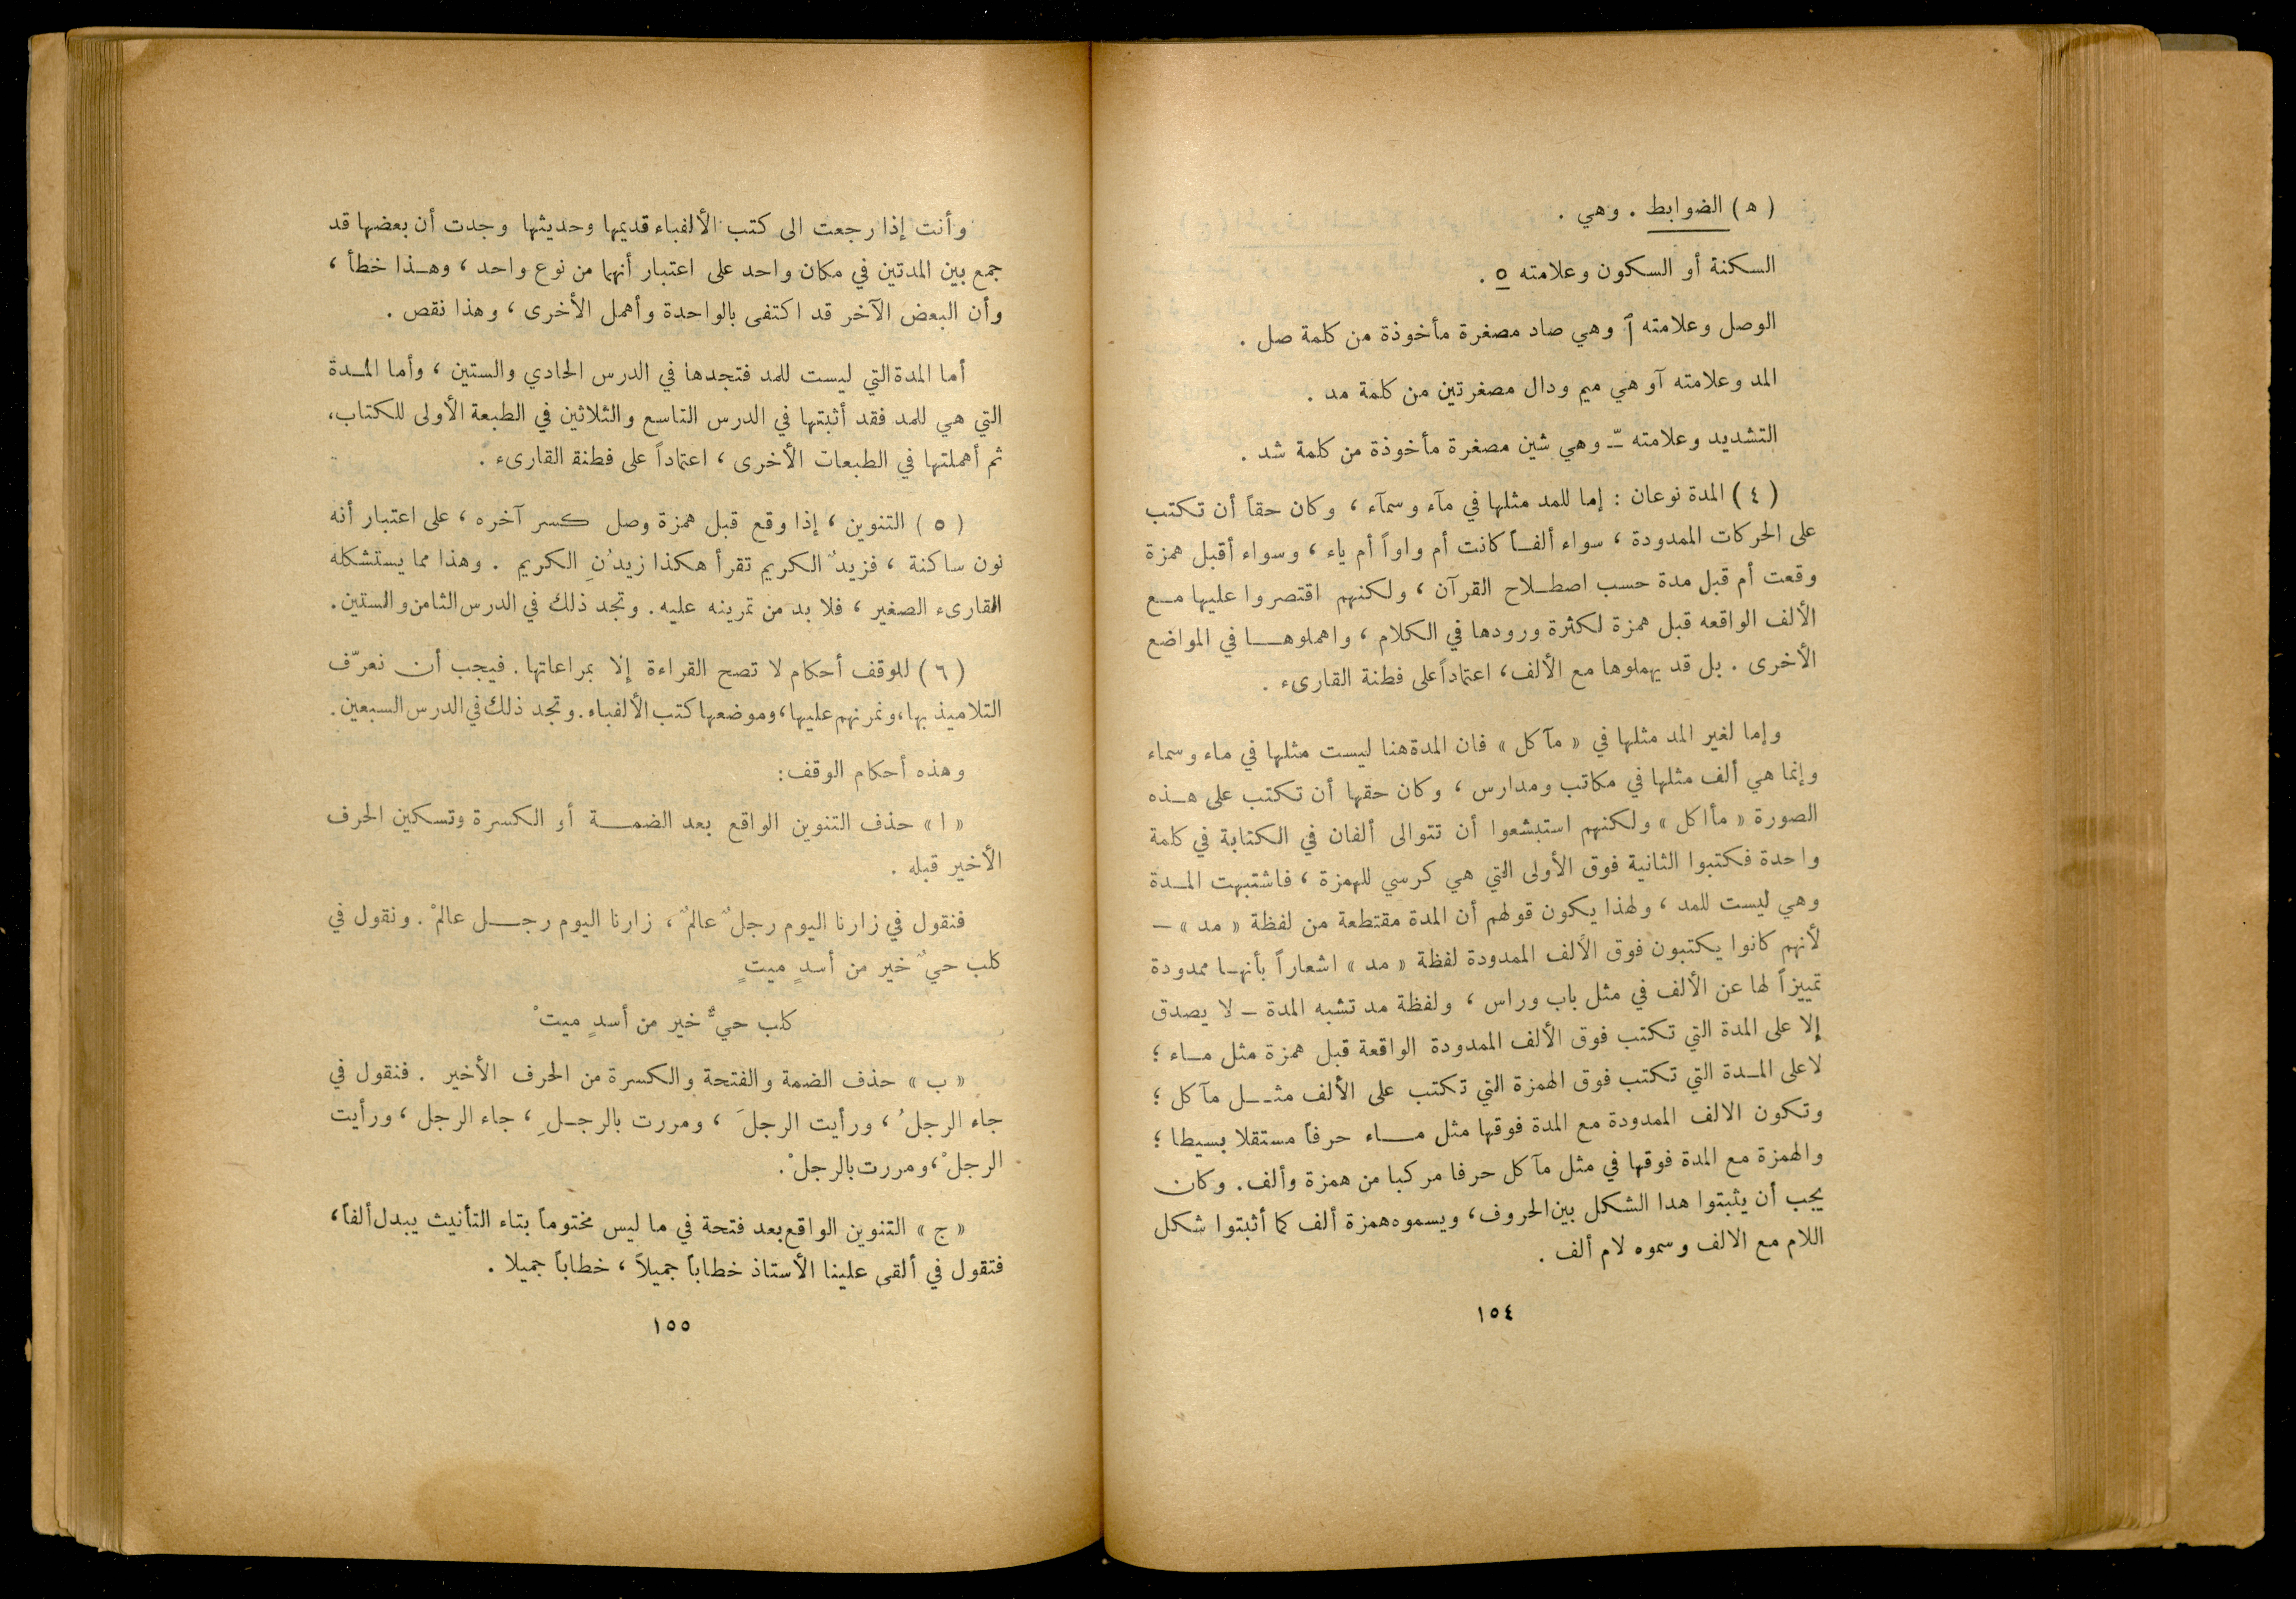 ( ه ) الضوابط . وهي .
السكنة أو السكون وعلامته ْ .
الوصل وعلامته ٱ وهي صاد مصغرة مأخوذة من كلمة صل .
المد وعلامته آ وهي ميم ودال مصغرتين من كلمة مد .
التشديد وعلامته ـّـ وهي شين مصغرة مأخوذة من كلمة شد .
( ٤ ) المدة نوعان : إما للمد مثلها في مآء وسمآء ، وكان حقاً أن تكتب
على الحركات الممدودة ، سواء ألفــاً كانت أم واواً أم ياء ، وسواء أقبل همزة
وقعت أم قبل مدة حسب اصطــلاح القرآن ، ولكنهم اقتصروا عليها مــع
الألف الواقعه قبل همزة لكثرة ورودها في الكلام ، واهملوهـــا في المواضع
الأخرى . بل قد يهملوها مع الألف، اعتماداً على فطنة القارىء .
وإما لغير المد مثلها في « مآكل » فان المدة هنا ليست مثلها في ماء وسماء
وإنما هي ألف مثلها في مكاتب ومدارس ، وكان حقها أن تكتب على هــذه
الصورة « مأاكل » ولكنهم استبشعوا أن تتوالى ألفان في الكتابة في كلمة
واحدة فكتبوا الثانية فوق الأولى التي هي كرسي للهمزة ، فاشتبهت المــدة
وهي ليست للمد ، ولهذا يكون قولهم أن المدة مقتطعة من لفظة « مد » –
لأنهم كانوا يكتبون فوق الألف الممدودة لفظة « مد » اشعاراً بأنهــا ممدودة
تمييزاً لها عن الألف في مثل باب وراس ، ولفظة مد تشبه المدة – لا يصدق
إلا على المدة التي تكتب فوق الألف الممدودة الواقعة قبل همزة مثل مــاء ؛
لا على المــدة التي تكتب فوق الهمزة التي تكتب على الألف مثــل مآكل ؛
وتكون الالف الممدودة مع المدة فوقها مثل مـــاء حرفاً مستقلا بسيطا ؛
والهمزة مع المدة فوقها في مثل مآكل حرفا مركبا من همزة وألف . وكان
يجب أن يثبتوا هدا الشكل بين الحروف، ويسموه همزة ألف كما أثبتوا شكل
اللام مع الالف وسموه لام ألف .
١٥٤
وأنت إذا رجعت الى كتب الألفباء قديمها وحديثها وجدت أن بعضها قد
جمع بين المدتين في مكان واحد على اعتبار أنهما من نوع واحد ، وهــذا خطأ ،
وأن البعض الآخر قد اكتفى بالواحدة وأهمل الأخرى ، وهذا نقص .
أما المدة التي ليست للمد فتجدها في الدرس الحادي والستين ، وأما المــدة
التي هي للمد فقد أثبتها في الدرس التاسع والثلاثين في الطبعة الأولى للكتاب،
ثم أهملتها في الطبعات الأخرى ، اعتماداً على فطنة القارىء .
( ٥ ) التنوين ، إذا وقع قبل همزة وصل كسر آخره ، على اعتبار أنه
نون ساكنة ، فزيدٌ الكريم تقرأ هكذا زيدُنِ الكريم . وهذا مما يستشكله
القارىء الصغير ، فلا بد من تمرينه عليه . وتجد ذلك في الدرس الثامن والستين .
( ٦ ) للوقف أحكام لا تصح القراءة إلا بمراعاتها . فيجب أن نعرّف
التلاميذ بها، ونمرنهم عليها، وموضعها كتب الألفباء. وتجد ذلك في الدرس السبعين .
وهذه أحكام الوقف :
« ا » حذف التنوين الواقع بعد الضمــة أو الكسرة وتسكين الحرف
الأخير قبله .
فنقول في زارنا اليوم رجلٌ عالمٌ ، زارنا اليوم رجـــل عالمْ . ونقول في
كلب حيٌ خير من أسدٍ ميتٍ
كلب حيٌّ خير من أسدٍ ميتْ
« ب » حذف الضمة والفتحة والكسرة من الحرف الأخير . فنقول في
جاء الرجلُ ، ورأيت الرجلَ ، ومررت بالرجــلِ ، جاء الرجل ، ورأيت
الرجلْ، ومررت بالرجلْ .
« ج » التنوين الواقع بعد فتحة في ما ليس مختوماً بتاء التأنيث يبدل ألفاً ،
فتقول في ألقى علينا الأستاذ خطاباً جميلاً ، خطاباً جميلا .
١٥٥